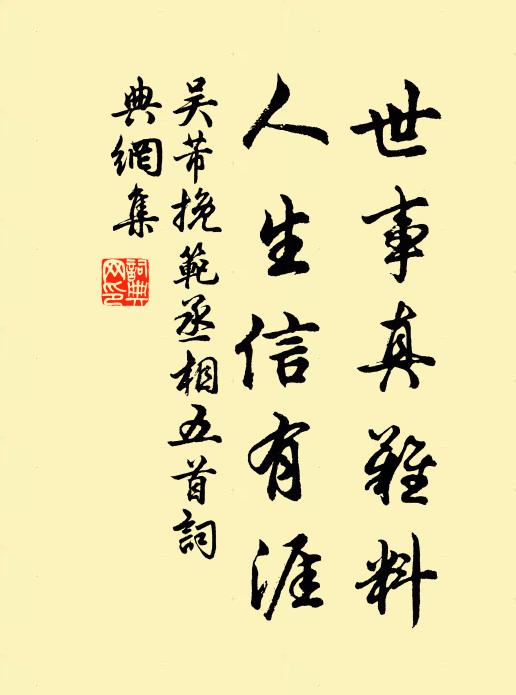 世事真難料
人生信有涯
吳芾挽範丞相五首詞
典網集
詞典網印